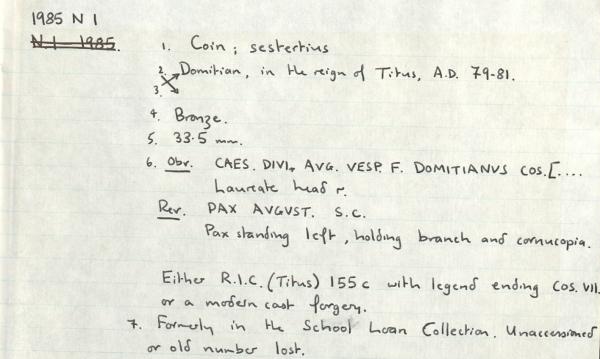 1985 N 1
N.1 1985.
1. Coin ; sestertius
2. Domitian, in the reign of Titus, A.D. 79-81.
3.
4. Bronze.
5. 33.5 mm.
6. Obv. CAES. DIVI. AVG. VESP. F. DOMITIANVS COS.[....
Laureate head r.
Rev. PAX AVGVST. S.C.
Pax standing left, holding branch and cornucopia.
Either R.I.C. (Titus) 155c with legend ending COS. VII.
or a modern cast forgery.
7. Formerly in the School Loan Collection. Unaccessioned
or old number lost.